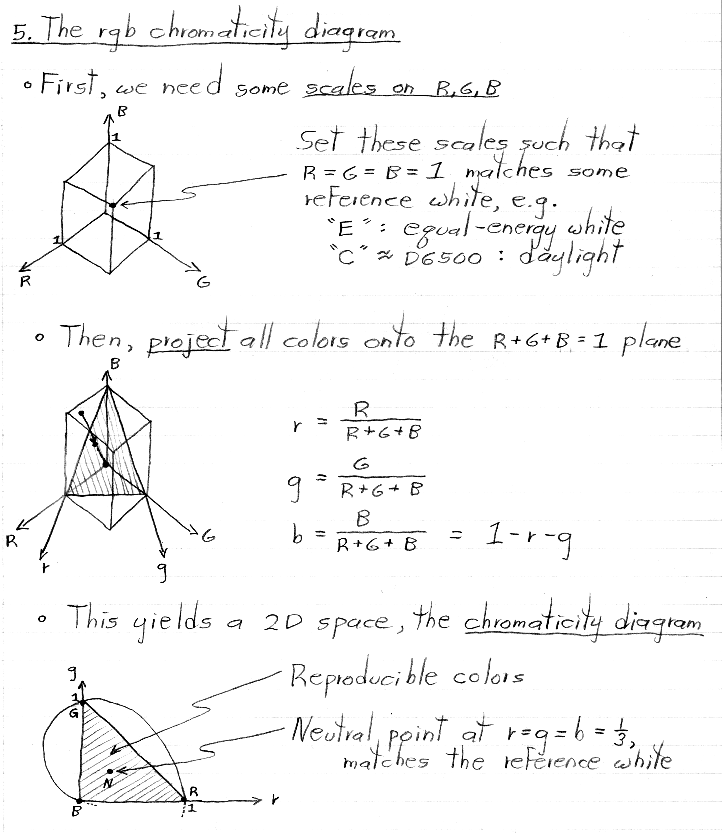 5. The rgb chromaticity diagram
∘ First, we need some scales on R,G,B
B
1
1
1
R
G
Set these scales such that
R = G = B = 1 matches some
reference white, e.g.
"E" : equal-energy white
"C" ≈ D6500 : daylight
∘ Then, project all colors onto the R+G+B=1 plane
B
R
G
r
g
r = R / R+G+B
g = G / R+G+B
b = B / R+G+B = 1-r-g
∘ This yields a 2D space, the chromaticity diagram
g
1
G
N
B
R
1
r
Reproducible colors
Neutral point at r=g=b=1/3,
matches the reference white